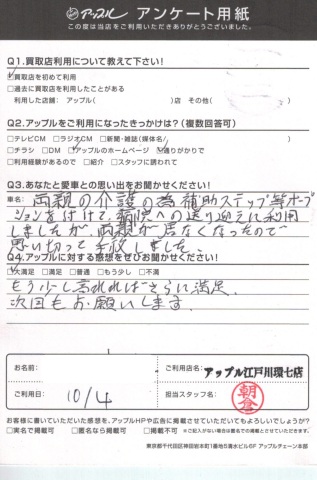 アップル アンケート用紙
この度は当店をご利用いただきありがとうございました。
Q1.買取店利用について教えて下さい!
☑買取店を初めて利用
□過去に買取店を利用したことがある
利用した店舗： アップル( )店 その他( )
Q2.アップルをご利用になったきっかけは?(複数回答可)
□テレビCM □ラジオCM □新聞・雑誌(媒体名/ )
□チラシ □DM ☑アップルのホームページ ☑通りがかりで
□利用経験があるので □紹介 □スタッフに誘われて
Q3.あなたと愛車との思い出をお聞かせください!
車名: 両親の介護の為補助ステップ等オープ
ションを付けて、病院への送り迎えに利用
しましたが、両親が居なくなったので
思い切って手放しました。
Q4.アップルに対する感想をぜひお聞かせください!
☑大満足 □満足 □普通 □もう少し □不満
もう少し高ければさらに満足。
次回もお願いします。
お名前:
ご利用店名: アップル江戸川環七店
ご利用日: 10/4
担当スタッフ名: 朝倉
お客様に書いていただいた感想を、アップルHPや広告に掲載させていただいてもよろしいでしょうか?
□実名で掲載可 □匿名なら掲載可 □掲載不可 ※ご記入がない場合は匿名での掲載とさせていただきます。
東京都千代田区神田岩本町1番地5清水ビル6F アップルチェーン本部